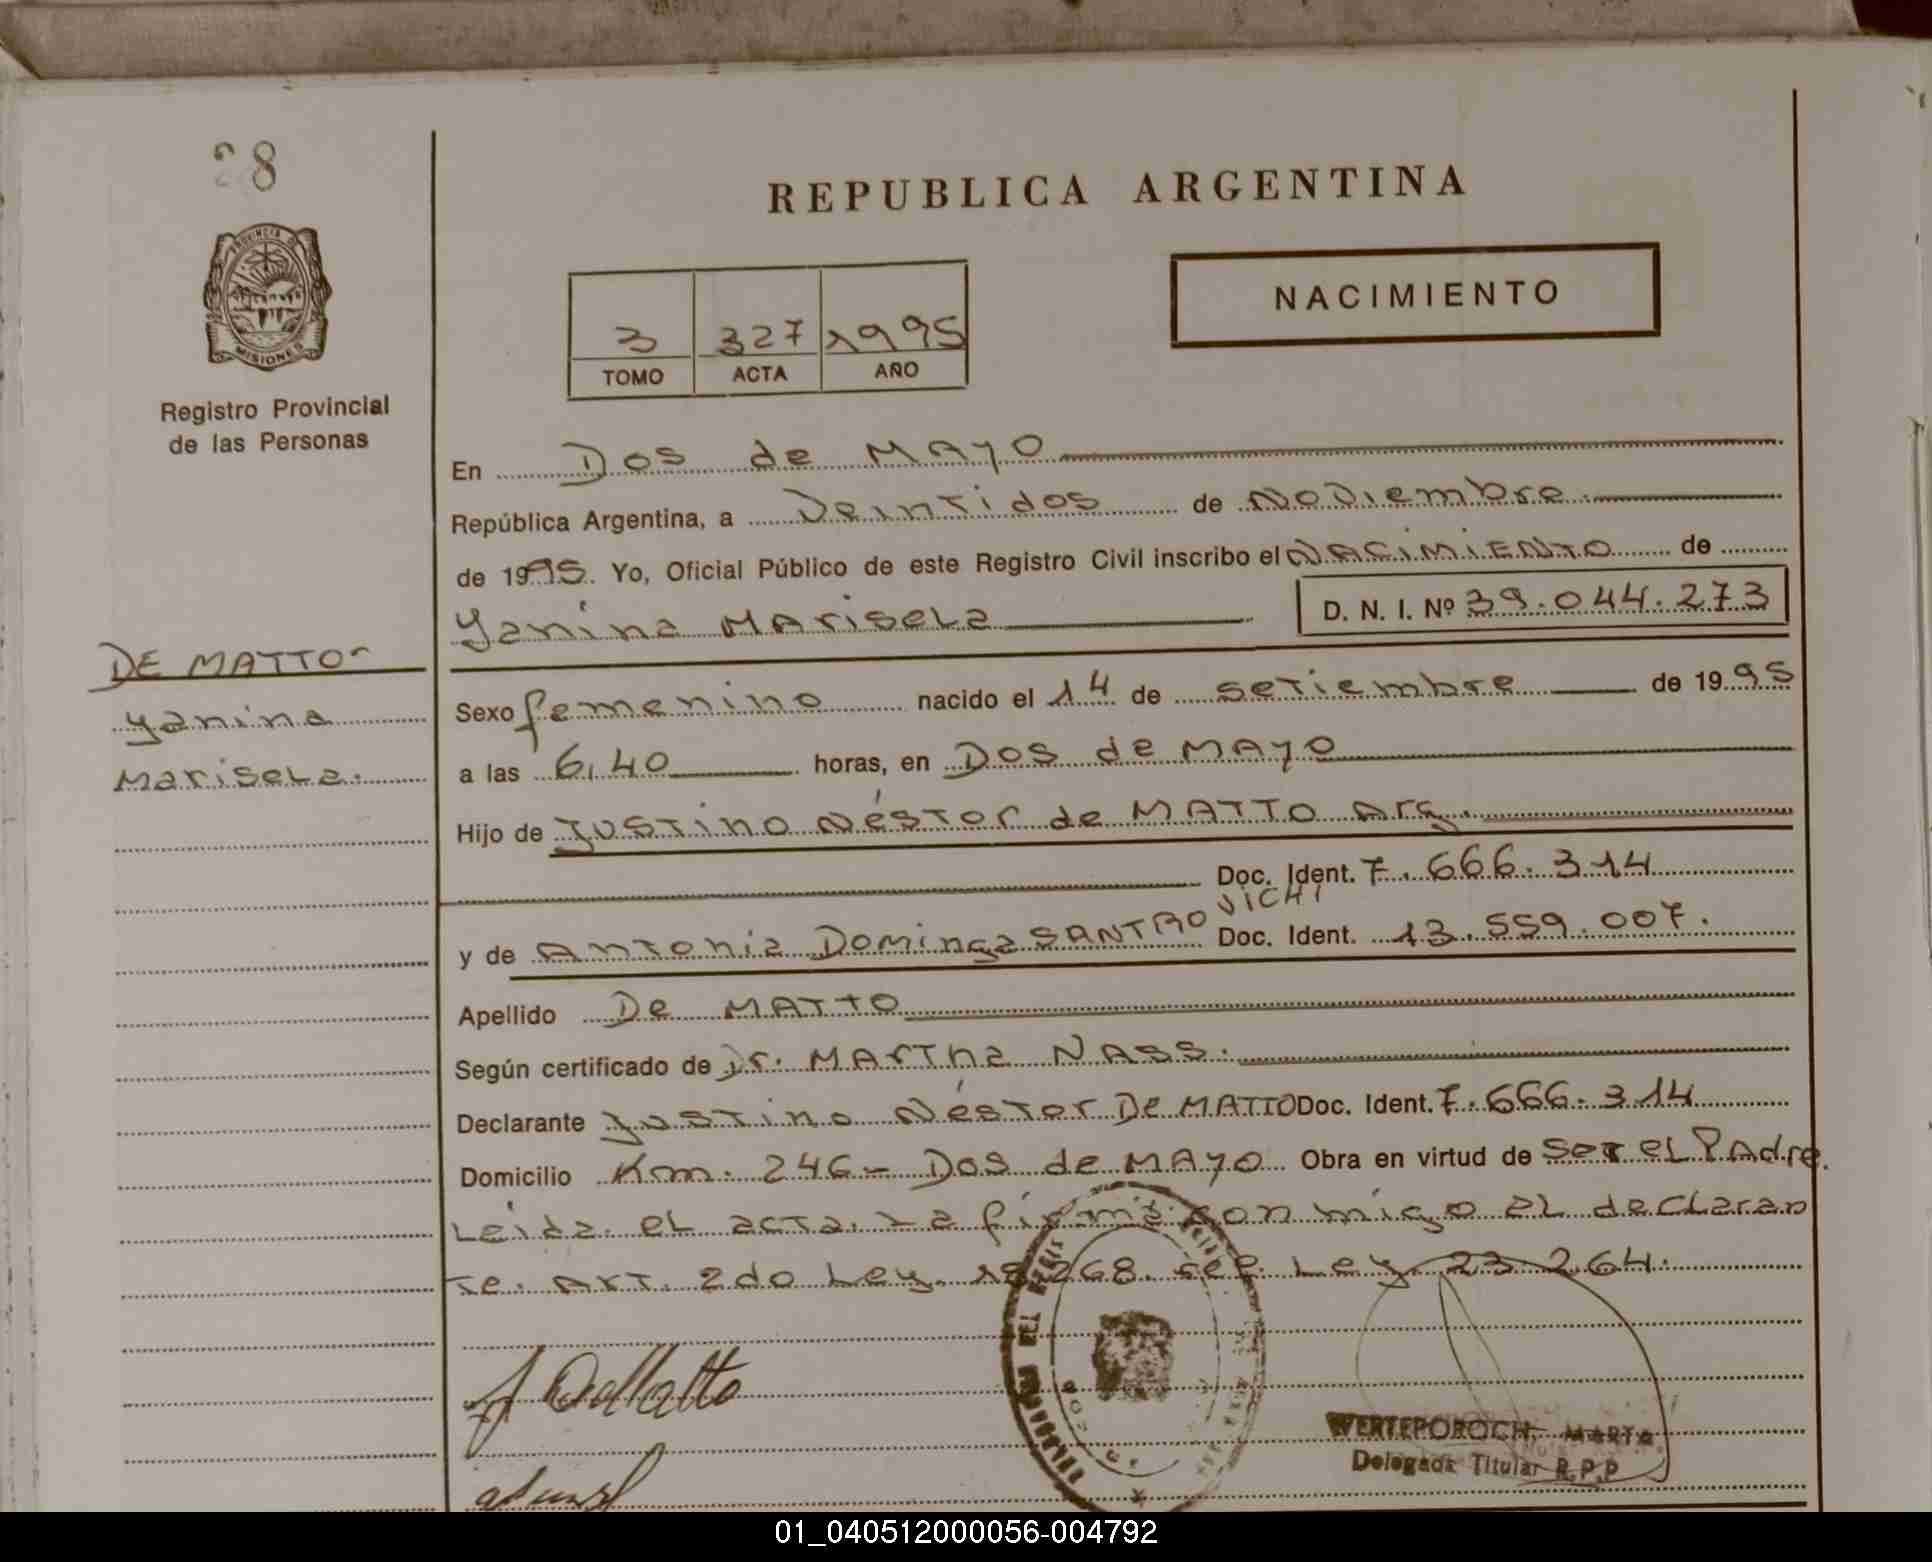 28
REPUBLICA ARGENTINA
PROVINCIA DE
MISIONES
NACIMIENTO
3 327 1995
TOMO ACTA AÑO
Registro Provincial
de las Personas
En Dos de MAYO
República Argentina, a Veintidos de Noviembre
de 1995. Yo, Oficial Público de este Registro Civil inscribo el NACIMIENTO de
Yanina MARiseLa D. N. I. Nº 39.044.273
DE MATTO-
Yanina
Marisela.
Sexo femenino nacido el 14 de setiembre de 1995
a las 6,40 horas, en Dos de MAYO
Hijo de Justino Néstor de MATTO Arg.
Doc. Ident. 7.666.314
y de Antonia Dominga SANTROVICHI Doc. Ident. 13.559.007.
Apellido De MATTO
Según certificado de Dr. MArtha NASS.
Declarante Justino Néstor De MATTO Doc. Ident. 7.666.314
Domicilio Km. 246- Dos de MAYO Obra en virtud de ser el PAdre.
Leida el acta, La firma conmigo el declaran
te. Art. 2do Ley. 18.268. ref. Ley 23.264.
WERTEPOROCH, MARTA
Delegada Titular R.P.P
01_040512000056-004792